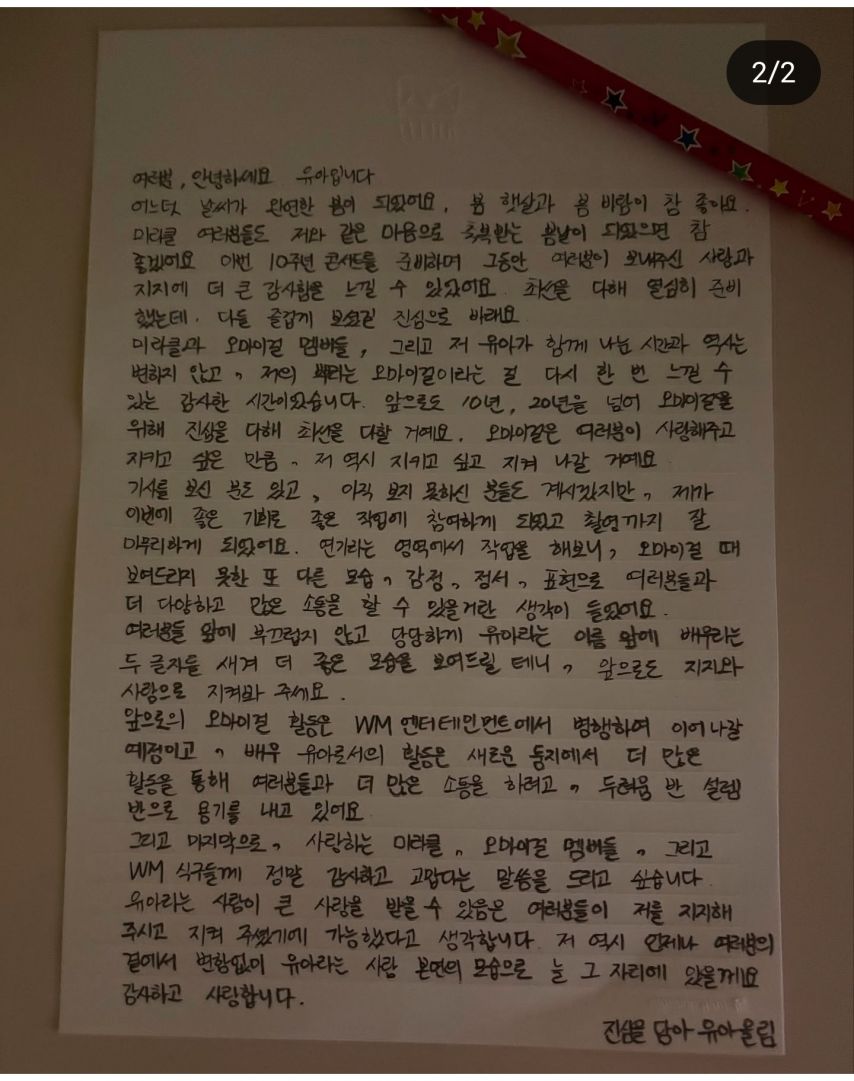 2/2
여러분, 안녕하세요 유아입니다
어느덧 날씨가 완연한 봄이 되었어요. 봄 햇살과 봄 바람이 참 좋아요.
미라클 여러분들도 저와 같은 마음으로 축복받는 봄날이 되었으면 참
좋겠어요 이번 10주년 콘서트를 준비하며 그동안 여러분이 보내주신 사랑과
지지에 더 큰 감사함을 느낄 수 있었어요. 최선을 다해 열심히 준비
했는데. 다들 즐겁게 보셨길 진심으로 바래요
미라클과 오마이걸 멤버들, 그리고 저 유아가 함께 나눈 시간과 역사는
변하지 않고, 저의 뿌리는 오마이걸이라는 걸 다시 한 번 느낄 수
있는 감사한 시간이었습니다. 앞으로도 10년, 20년을 넘어 오마이걸을
위해 진심을 다해 최선을 다할 거예요. 오마이걸은 여러분이 사랑해주고
지키고 싶은 만큼, 저 역시 지키고 싶고 지켜 나갈 거예요
기사를 보신 분도 있고, 아직 보지 못하신 분들도 계시겠지만, 제가
이번에 좋은 기회로 좋은 작업에 참여하게 되었고 촬영까지 잘
마무리하게 되었어요. 연기라는 영역에서 작업을 해보니, 오마이걸 때
보여드리지 못한 또 다른 모습, 감정, 정서, 표현으로 여러분들과
더 다양하고 많은 소통을 할 수 있을거란 생각이 들었어요.
여러분들 앞에 부끄럽지 않고 당당하게 유아라는 이름 앞에 배우라는
두 글자를 새겨 더 좋은 모습을 보여드릴 테니, 앞으로도 지지와
사랑으로 지켜봐 주세요.
앞으로의 오마이걸 활동은 WM엔터테인먼트에서 병행하여 이어나갈
예정이고, 배우 유아로서의 활동은 새로운 둥지에서 더 많은
활동을 통해 여러분들과 더 많은 소통을 하려고, 두려움 반 설렘
반으로 용기를 내고 있어요
그리고 마지막으로, 사랑하는 미라클, 오마이걸 멤버들, 그리고
WM 식구들께 정말 감사하고 고맙다는 말씀을 드리고 싶습니다.
유아라는 사람이 큰 사랑을 받을 수 있음은 여러분들이 저를 지지해
주시고 지켜 주셨기에 가능했다고 생각합니다. 저 역시 언제나 여러분의
곁에서 변함없이 유아라는 사람 본연의 모습으로 늘 그 자리에 있을게요
감사하고 사랑합니다.
진심을 담아 유아올림